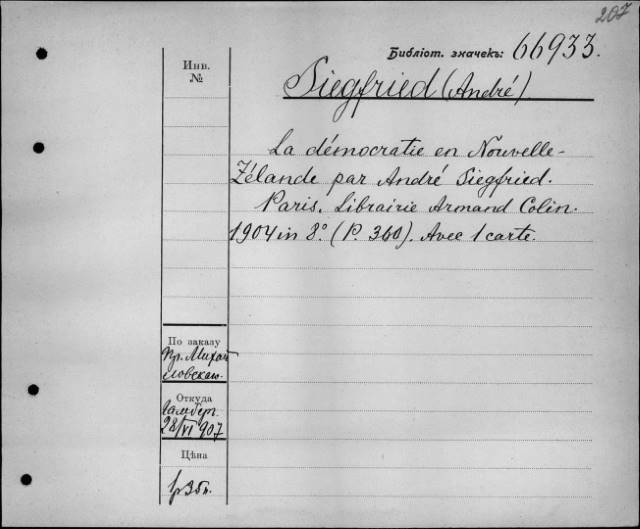 207
Библіот. значекъ: 66933.
Инв.
№
Siegfried (André).
La démocratie en Nouvelle-
Zélande par André Siegfried.
Paris. Librairie Armand Colin.
1904 in 8° (P. 360). Avec 1 carte.
По заказу
Пр. Михай
ловскаго.
Откуда
28/VI 907
Цѣна
1р35к.